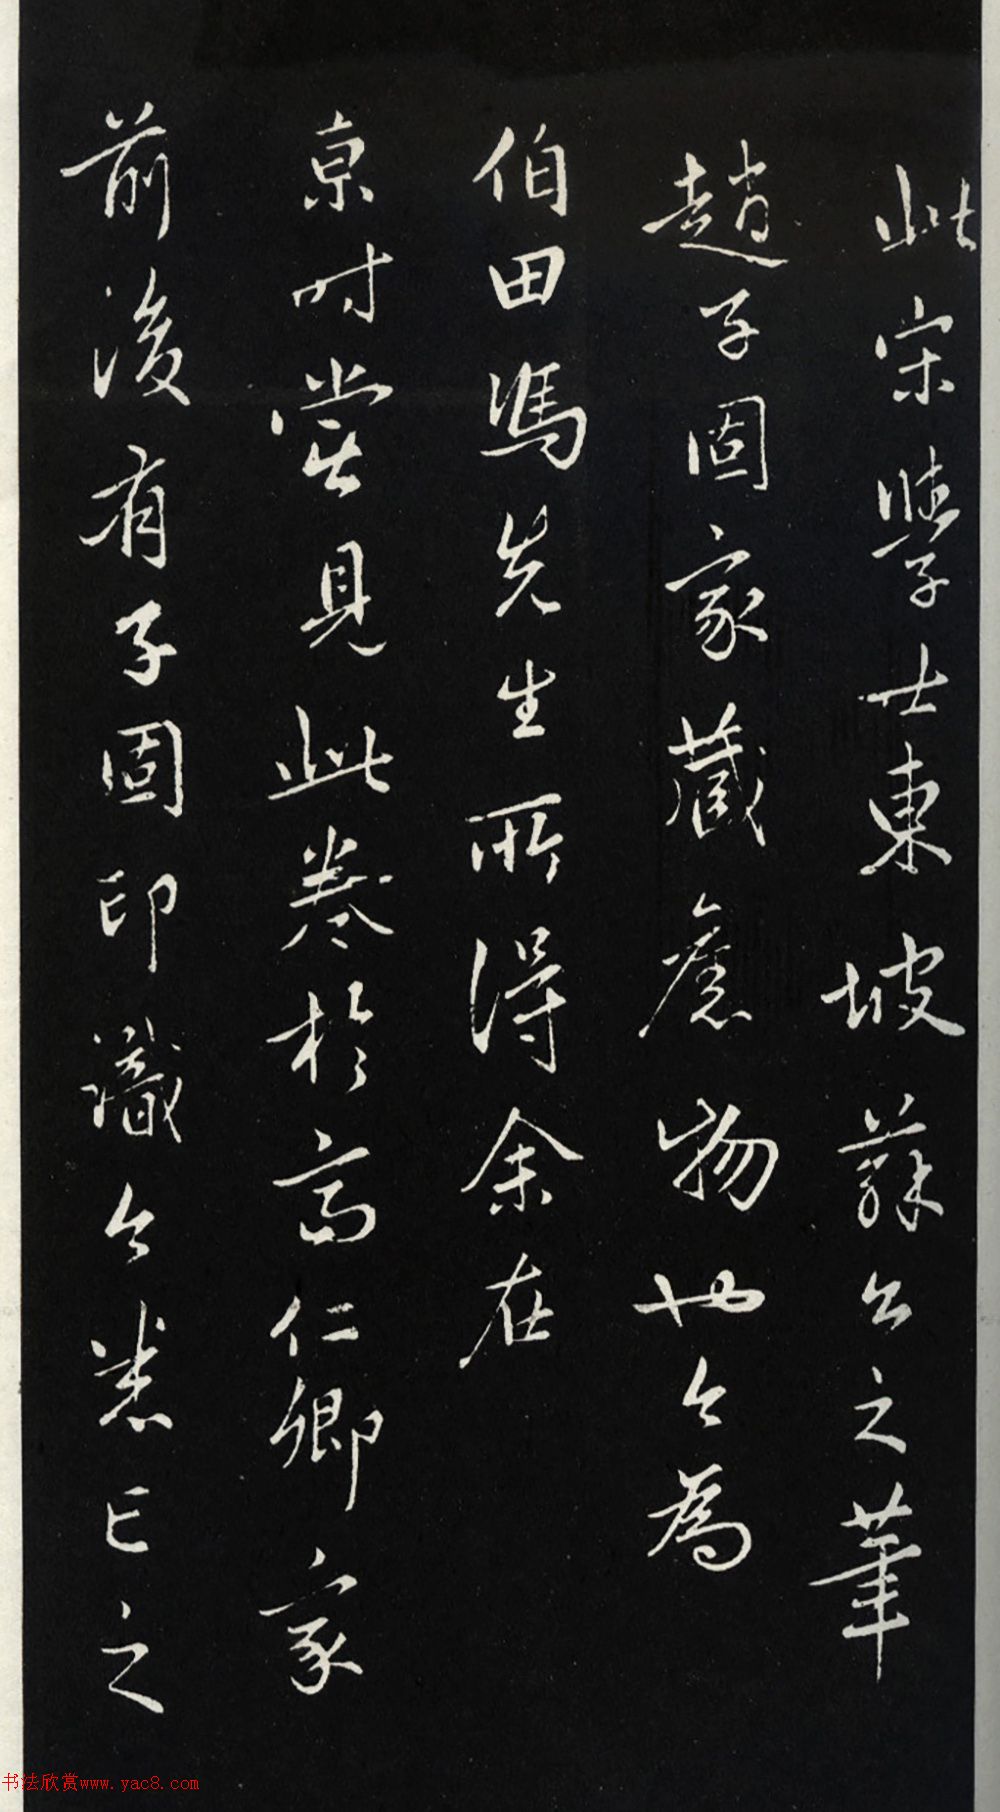 此宋學士東坡蘇公之筆
趙子固家藏舊物也今為
伯田馮先生所得余在
京时嘗見此卷於高仁卿家
前後有子固印識今悉亡之
书法欣赏www.yac8.com